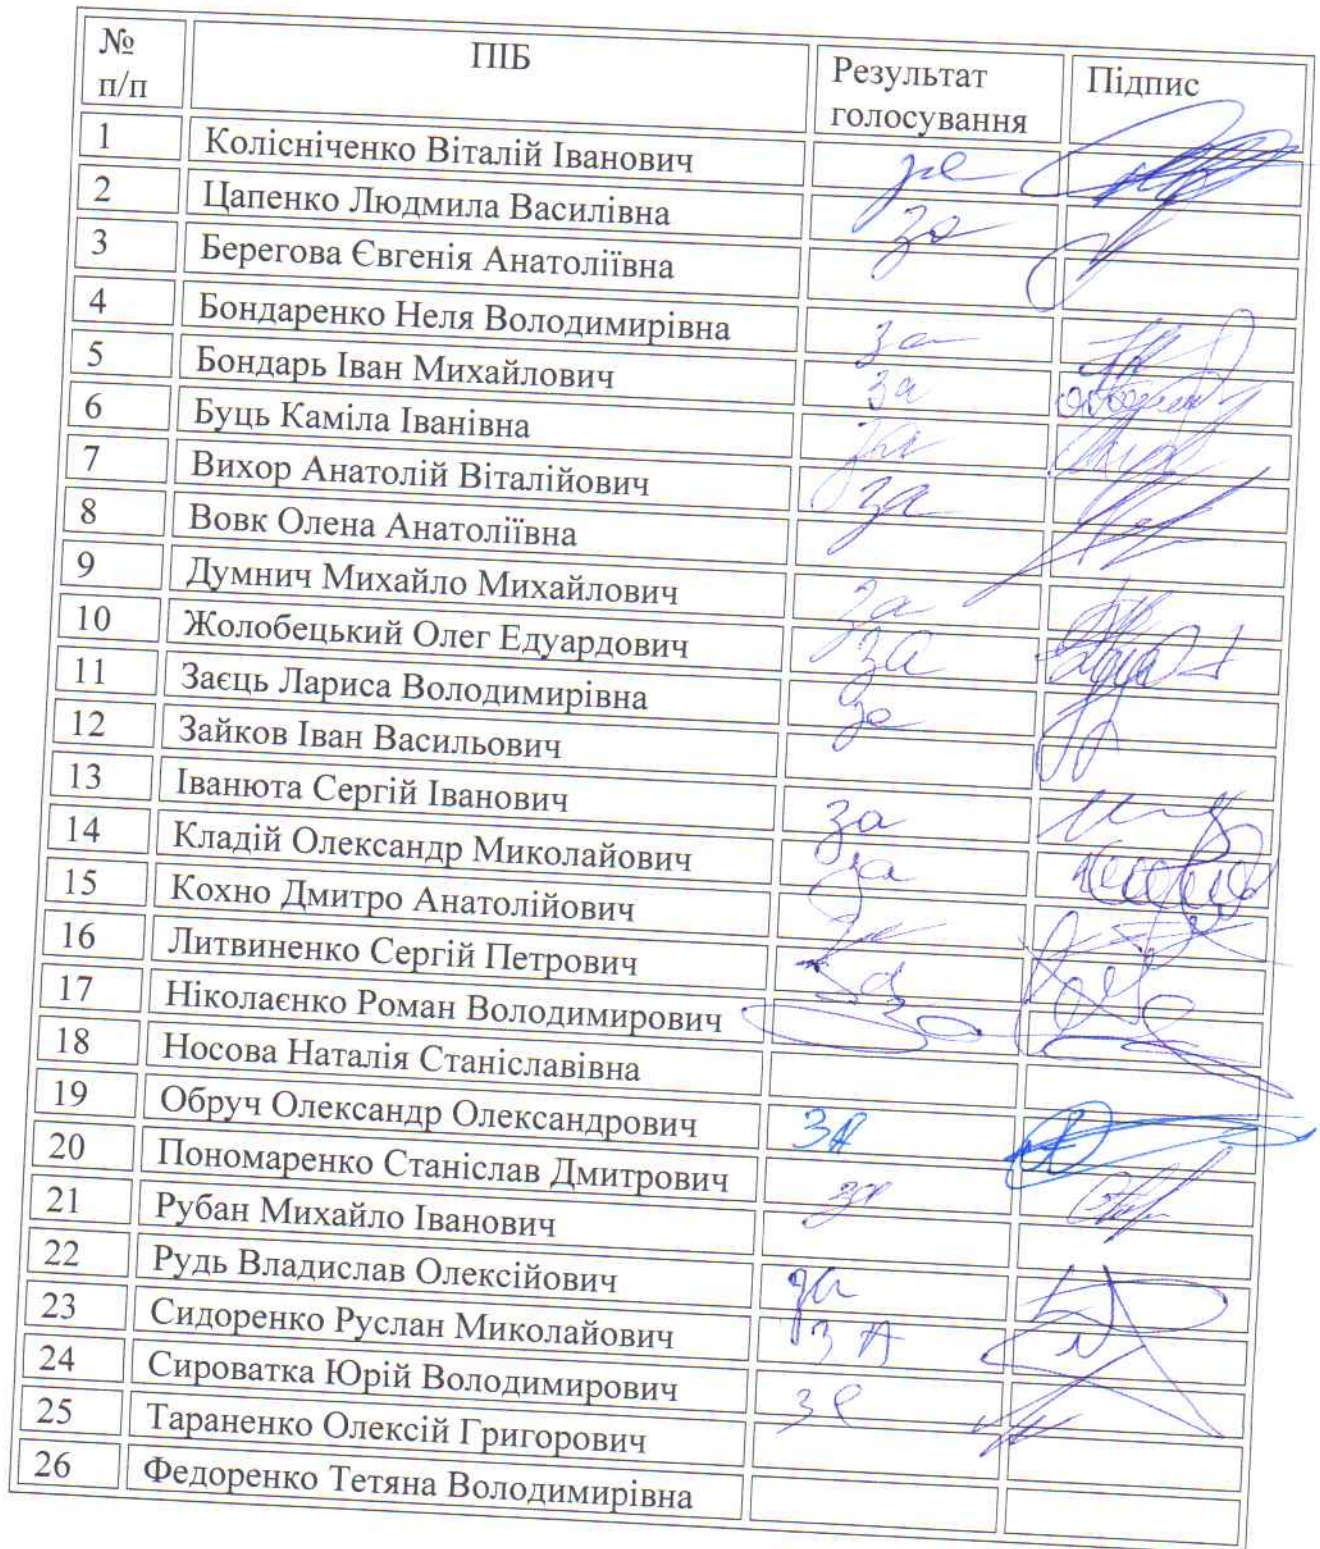 № ПІБ Результат Підпис
п/п голосування
1 Колісніченко Віталій Іванович за
2 Цапенко Людмила Василівна за
3 Берегова Євгенія Анатоліївна
4 Бондаренко Неля Володимирівна за
5 Бондарь Іван Михайлович за
6 Буць Каміла Іванівна за
7 Вихор Анатолій Віталійович за
8 Вовк Олена Анатоліївна
9 Думнич Михайло Михайлович за
10 Жолобецький Олег Едуардович за
11 Заєць Лариса Володимирівна за
12 Зайков Іван Васильович
13 Іванюта Сергій Іванович за
14 Кладій Олександр Миколайович за
15 Кохно Дмитро Анатолійович
16 Литвиненко Сергій Петрович за
17 Ніколаєнко Роман Володимирович за
18 Носова Наталія Станіславівна
19 Обруч Олександр Олександрович ЗА
20 Пономаренко Станіслав Дмитрович за
21 Рубан Михайло Іванович
22 Рудь Владислав Олексійович за
23 Сидоренко Руслан Миколайович ЗА
24 Сироватка Юрій Володимирович за
25 Тараненко Олексій Григорович
26 Федоренко Тетяна Володимирівна